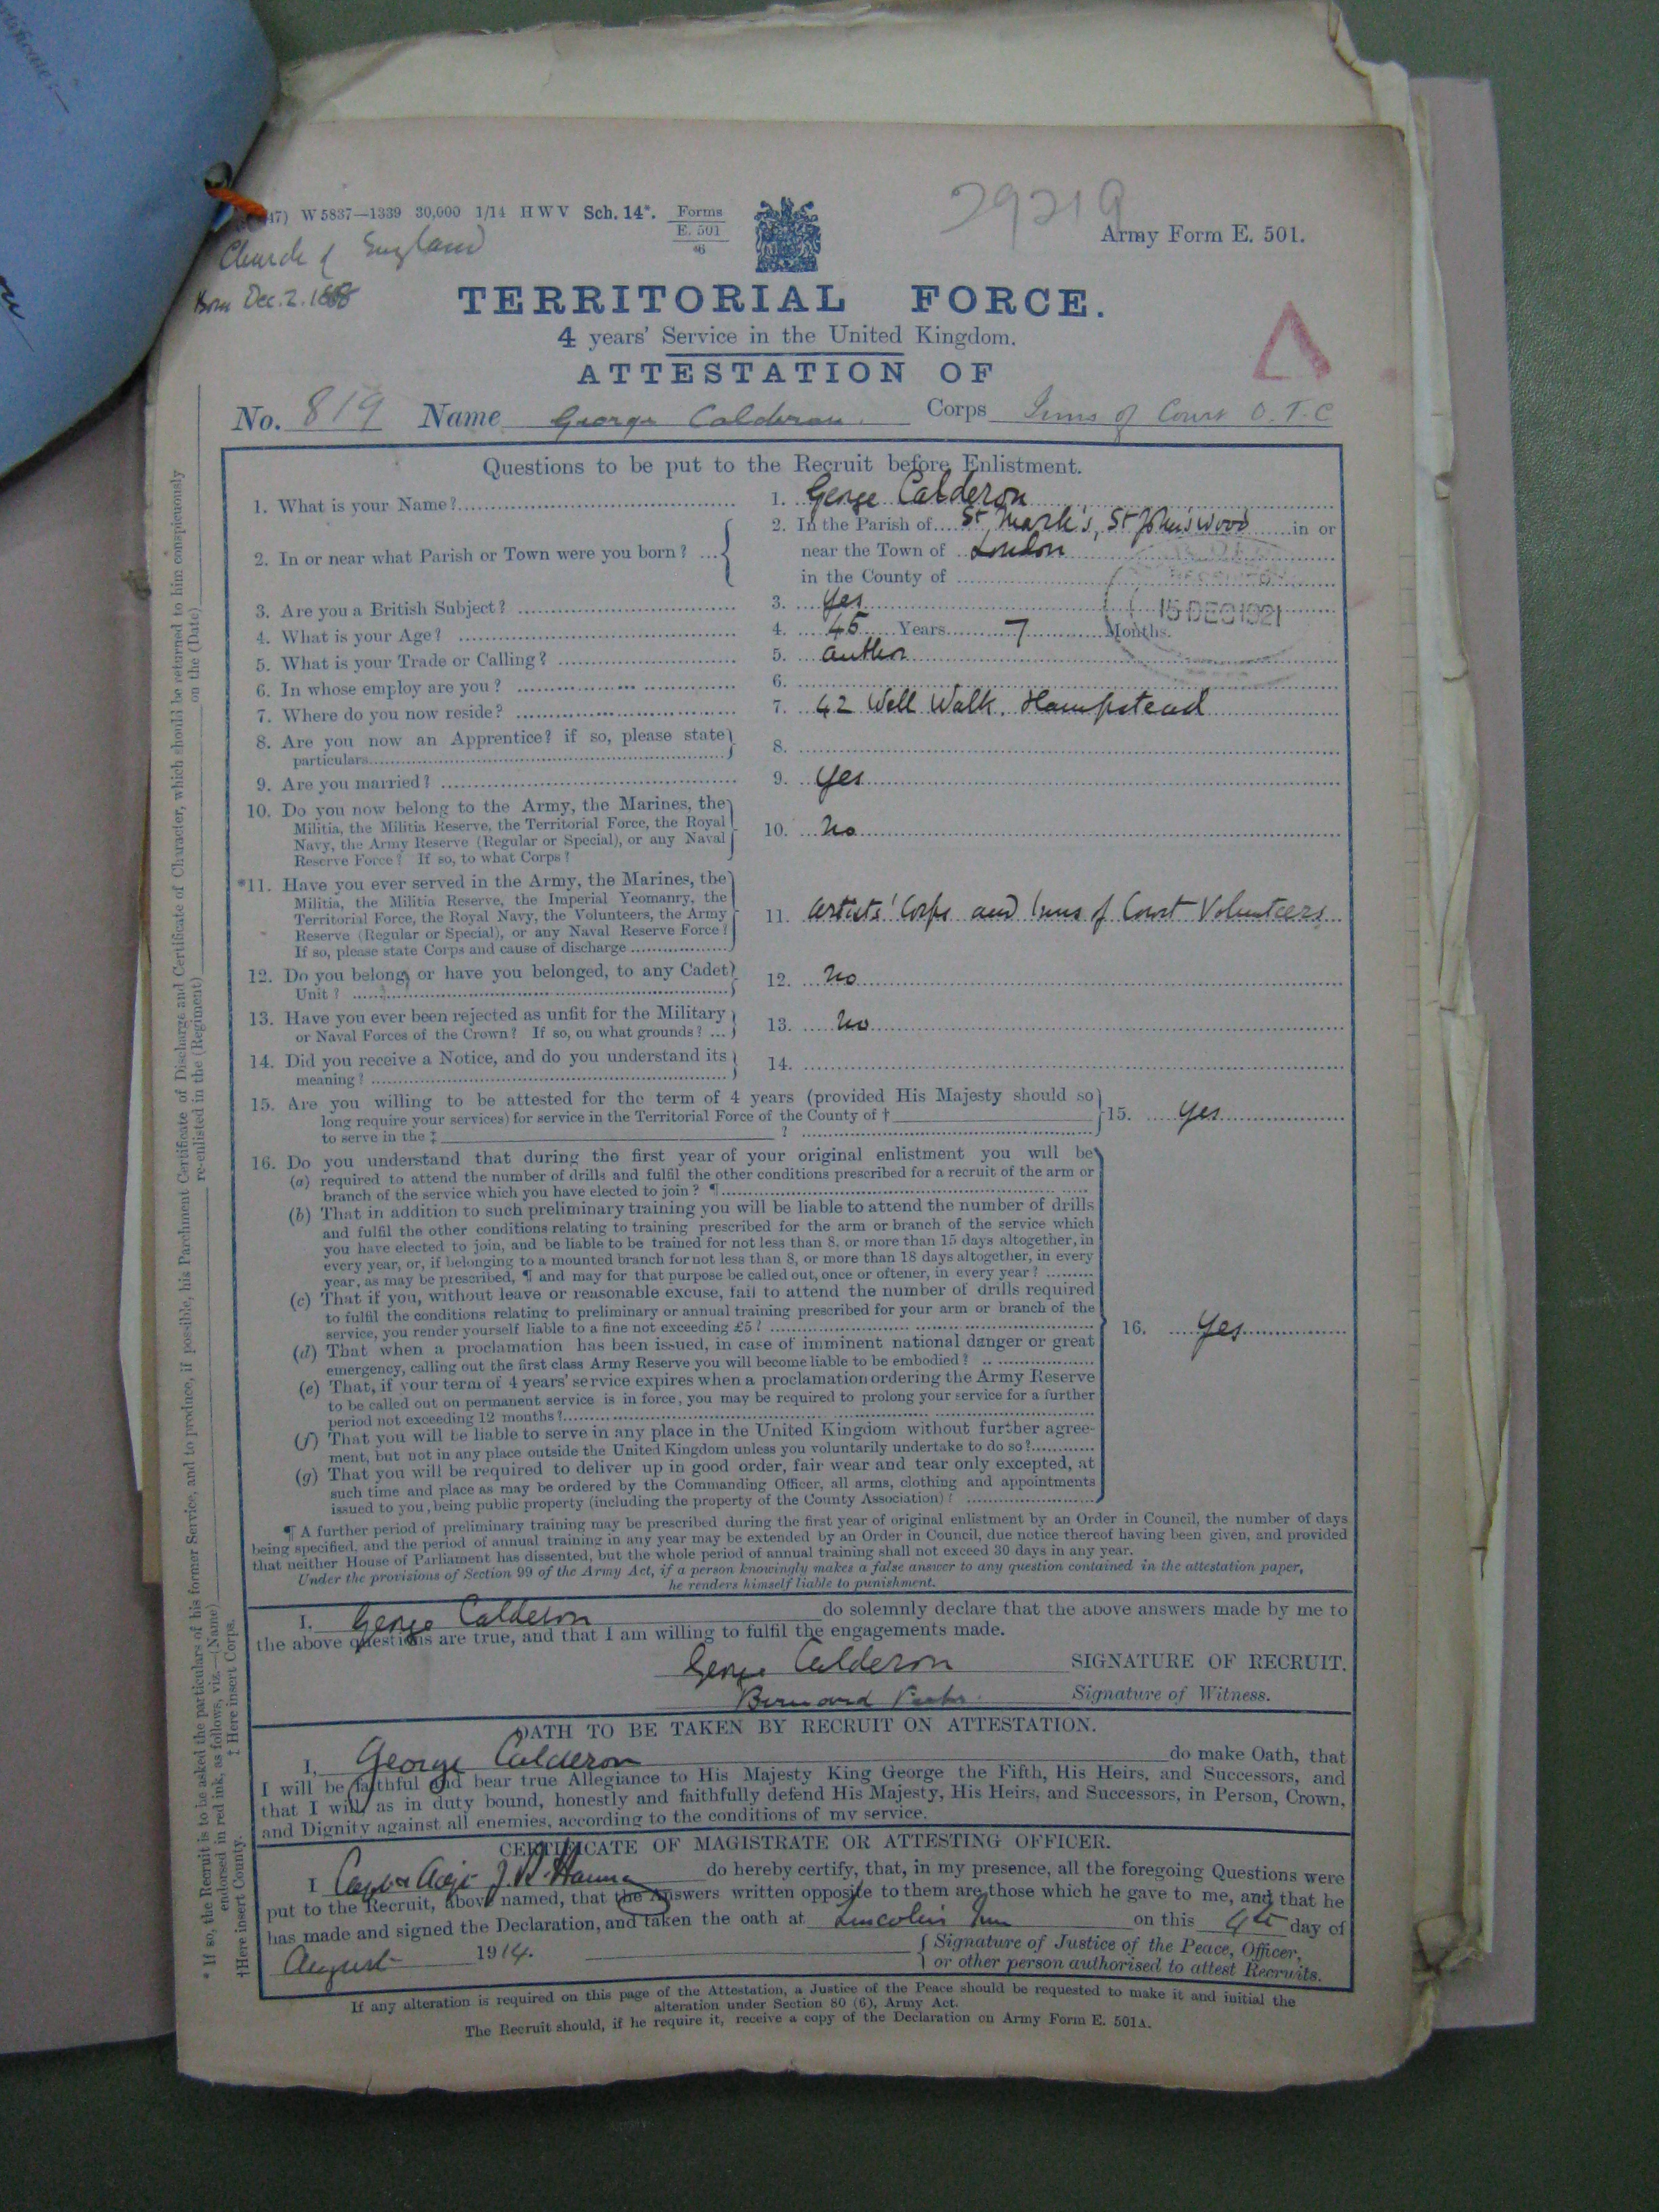 47) W 5837—1339 30,000 1/14 H W V Sch. 14*. Forms E. 501 /6
29219
Army Form E. 501.
Church of England
Born Dec. 2. 1868
TERRITORIAL FORCE.
4 years' Service in the United Kingdom.
ATTESTATION OF
No. 819 Name George Calderon Corps Inns of Court O.T.C
Questions to be put to the Recruit before Enlistment.
1. What is your Name? 1. George Calderon
2. In or near what Parish or Town were you born? 2. In the Parish of St Mark's, St John's Wood in or
near the Town of London
in the County of
3. Are you a British Subject? 3. Yes
15 DEC 1921
4. What is your Age? 4. 45 Years 7 Months.
5. What is your Trade or Calling? 5. Author
6. In whose employ are you? 6.
7. Where do you now reside? 7. 42 Well Walk. Hampstead
8. Are you now an Apprentice? if so, please state 8.
particulars
9. Are you married? 9. Yes
10. Do you now belong to the Army, the Marines, the
Militia, the Militia Reserve, the Territorial Force, the Royal 10. No
Navy, the Army Reserve (Regular or Special), or any Naval
Reserve Force? If so, to what Corps?
*11. Have you ever served in the Army, the Marines, the
Militia, the Militia Reserve, the Imperial Yeomanry, the
Territorial Force, the Royal Navy, the Volunteers, the Army 11. Artists' Corps and Inns of Court Volunteers
Reserve (Regular or Special), or any Naval Reserve Force?
If so, please state Corps and cause of discharge
12. Do you belong, or have you belonged, to any Cadet 12. No
Unit?
13. Have you ever been rejected as unfit for the Military 13. No
or Naval Forces of the Crown? If so, on what grounds? ...
14. Did you receive a Notice, and do you understand its 14.
meaning?
15. Are you willing to be attested for the term of 4 years (provided His Majesty should so
long require your services) for service in the Territorial Force of the County of † 15. Yes
to serve in the ‡ ?
16. Do you understand that during the first year of your original enlistment you will be
(a) required to attend the number of drills and fulfil the other conditions prescribed for a recruit of the arm or
branch of the service which you have elected to join? ¶
(b) That in addition to such preliminary training you will be liable to attend the number of drills
and fulfil the other conditions relating to training prescribed for the arm or branch of the service which
you have elected to join, and be liable to be trained for not less than 8, or more than 15 days altogether, in
every year, or, if belonging to a mounted branch for not less than 8, or more than 18 days altogether, in every
year, as may be prescribed, ¶ and may for that purpose be called out, once or oftener, in every year?
(c) That if you, without leave or reasonable excuse, fail to attend the number of drills required
to fulfil the conditions relating to preliminary or annual training prescribed for your arm or branch of the
service, you render yourself liable to a fine not exceeding £5? 16. Yes
(d) That when a proclamation has been issued, in case of imminent national danger or great
emergency, calling out the first class Army Reserve you will become liable to be embodied?
(e) That, if your term of 4 years' service expires when a proclamation ordering the Army Reserve
to be called out on permanent service is in force, you may be required to prolong your service for a further
period not exceeding 12 months?
(f) That you will be liable to serve in any place in the United Kingdom without further agree-
ment, but not in any place outside the United Kingdom unless you voluntarily undertake to do so?
(g) That you will be required to deliver up in good order, fair wear and tear only excepted, at
such time and place as may be ordered by the Commanding Officer, all arms, clothing and appointments
issued to you, being public property (including the property of the County Association)?
¶ A further period of preliminary training may be prescribed during the first year of original enlistment by an Order in Council, the number of days
being specified, and the period of annual training in any year may be extended by an Order in Council, due notice thereof having been given, and provided
that neither House of Parliament has dissented, but the whole period of annual training shall not exceed 30 days in any year.
Under the provisions of Section 99 of the Army Act, if a person knowingly makes a false answer to any question contained in the attestation paper,
he renders himself liable to punishment.
I, George Calderon do solemnly declare that the above answers made by me to
the above questions are true, and that I am willing to fulfil the engagements made.
George Calderon SIGNATURE OF RECRUIT.
Bernard Signature of Witness.
OATH TO BE TAKEN BY RECRUIT ON ATTESTATION.
I, George Calderon do make Oath, that
I will be faithful and bear true Allegiance to His Majesty King George the Fifth, His Heirs, and Successors, and
that I will, as in duty bound, honestly and faithfully defend His Majesty, His Heirs, and Successors, in Person, Crown,
and Dignity against all enemies, according to the conditions of my service.
CERTIFICATE OF MAGISTRATE OR ATTESTING OFFICER.
I Capt & Adjt do hereby certify, that, in my presence, all the foregoing Questions were
put to the Recruit, above named, that the Answers written opposite to them are those which he gave to me, and that he
has made and signed the Declaration, and taken the oath at Lincoln's Inn on this 4th day of
August 1914. Signature of Justice of the Peace, Officer,
or other person authorised to attest Recruits.
If any alteration is required on this page of the Attestation, a Justice of the Peace should be requested to make it and initial the
alteration under Section 80 (6), Army Act.
The Recruit should, if he require it, receive a copy of the Declaration on Army Form E. 501A.
* If so, the Recruit is to be asked the particulars of his former Service, and to produce, if possible, his Parchment Certificate of Discharge and Certificate of Character, which should be returned to him conspicuously
endorsed in red ink, as follows, viz.—(Name) re-enlisted in the (Regiment) on the (Date)
†Here insert County. ‡ Here insert Corps.